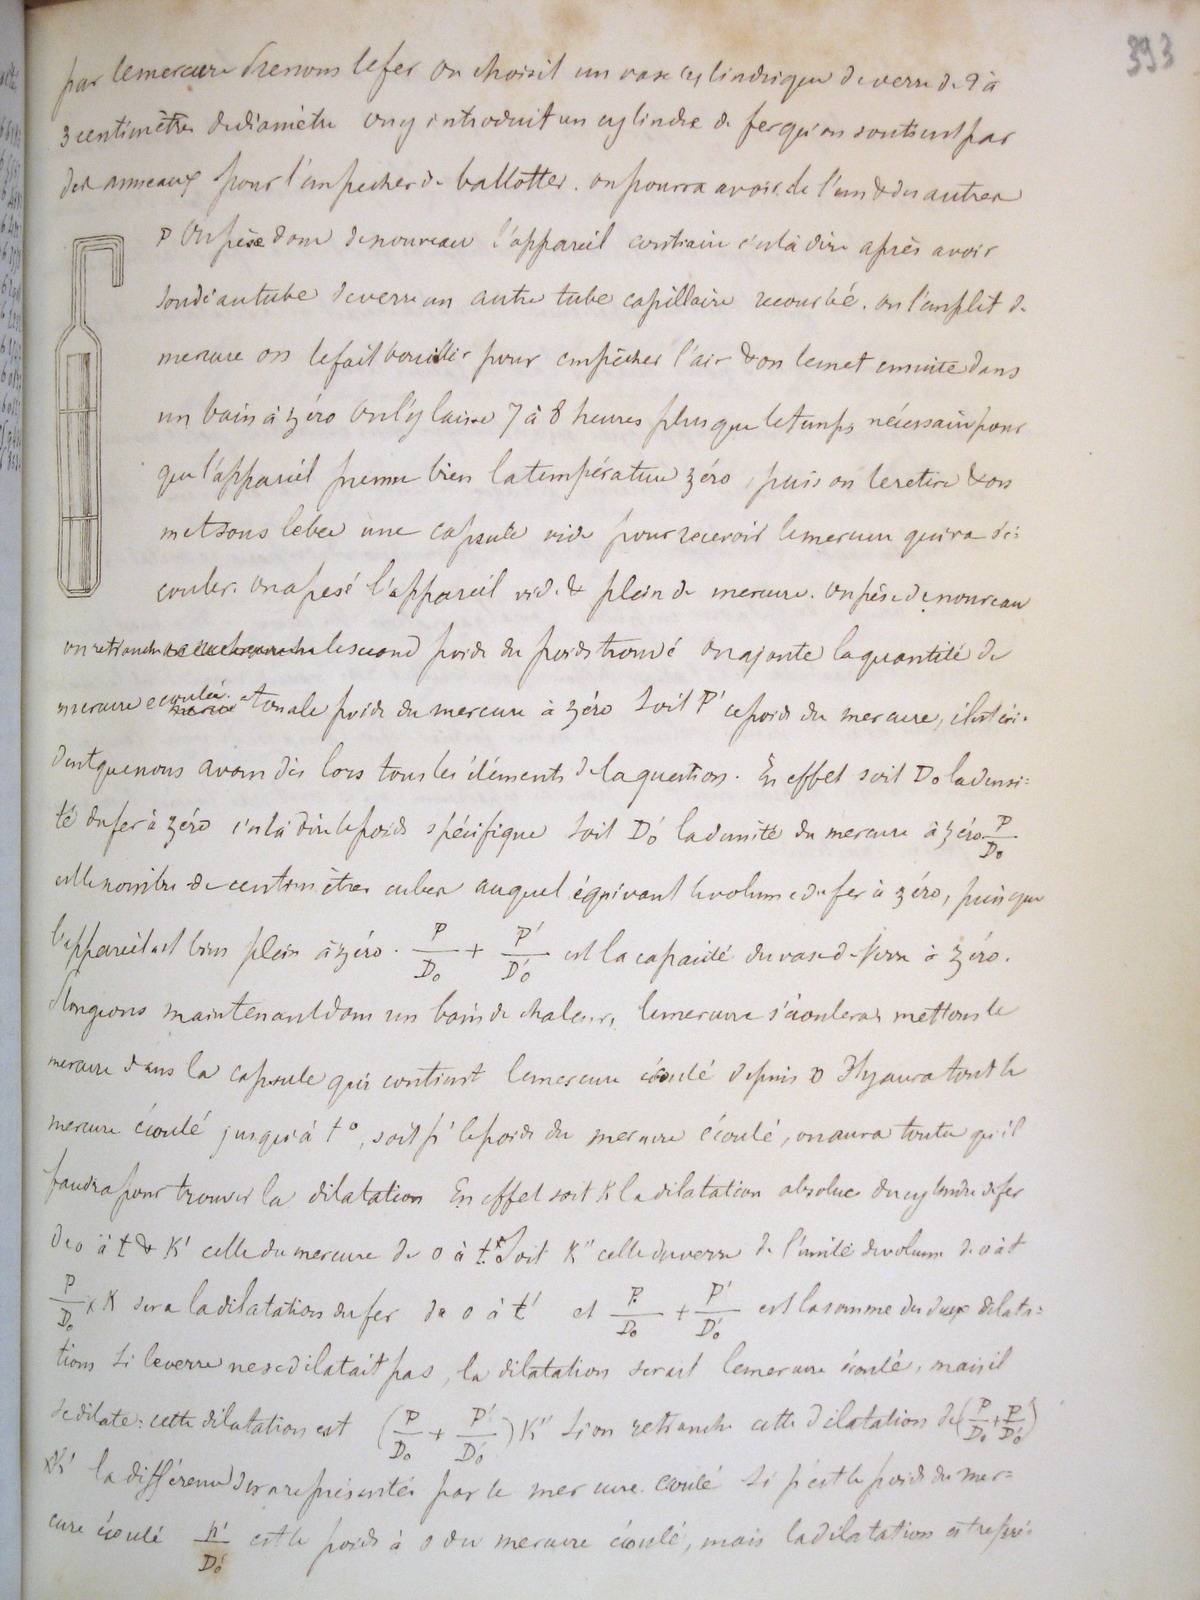 393
par le mercure Prenons le fer on choisit un vase cylindrique de verre de 2 à
3 centimètres de diamètre on y introduit un cylindre de fer qu'on soutient par
des anneaux pour l'empecher de ballotter. on pourra avoir de l'un & des autres
P On pèse donc de nouveau l'appareil contraire c'est à dire après avoir
soudé au tube de verre un autre tube capillaire recourbé. on l'emplit de
mercure on le fait bouillir pour empêcher l'air & on le met ensuite dans
un bain à zéro On l'y laisse 7 à 8 heures plus que le temps nécessaire pour
que l'appareil prenne bien la température zéro, puis on le retire & on
met sous le bec une capsule vide pour recevoir le mercure qui va s'é=
couler. On a pesé l'appareil vide & plein de mercure. On pèse de nouveau
on retranche le second poids du poids trouvé on ajoute la quantité de
mercure écoulée et on a le poids du mercure à zéro Soit P' ce poids du mercure, il est évi=
dent que nous avons dès lors tous les éléments de la question. En effet soit D₀ la densi=
té du fer à zéro c'est à dire le poids spécifique soit D'₀ la densité du mercure à zéro. P/D₀
est le nombre de centimètres cubes auquel équivaut le volume du fer à zéro, puisque
l'appareil est bien plein à zéro. P/D₀ + P'/D'₀ est la capacité du vase de verre à zéro.
Plongeons maintenant dans un bain de chaleur, le mercure s'écoulera mettons le
mercure dans la capsule qui contient le mercure écoulé depuis 0 Il y aura tout le
mercure écoulé jusqu'à t°, soit p' le poids du mercure écoulé, on aura tout ce qu'il
faudra pour trouver la dilatation En effet soit K la dilatation absolue du cylindre de fer
de 0 à t & K' celle du mercure de 0 à t. Soit K'' celle du verre de l'unité de volume de 0 à t
P/D₀ x K sera la dilatation du fer de 0 à t' et P/D₀ + P'/D'₀ est la somme des deux dilata=
tions Si le verre ne se dilatait pas, la dilatation serait le mercure écoulé, mais il
se dilate: cette dilatation est (P/D₀ + P'/D'₀) K'' Si on retranche cette dilatation de (P/D₀ + P'/D'₀)
x K' la différence sera représentée par le mercure écoulé Si p' est le poids du mer=
cure écoulé p'/D'₀ est le poids à 0 du mercure écoulé, mais la dilatation est repré=